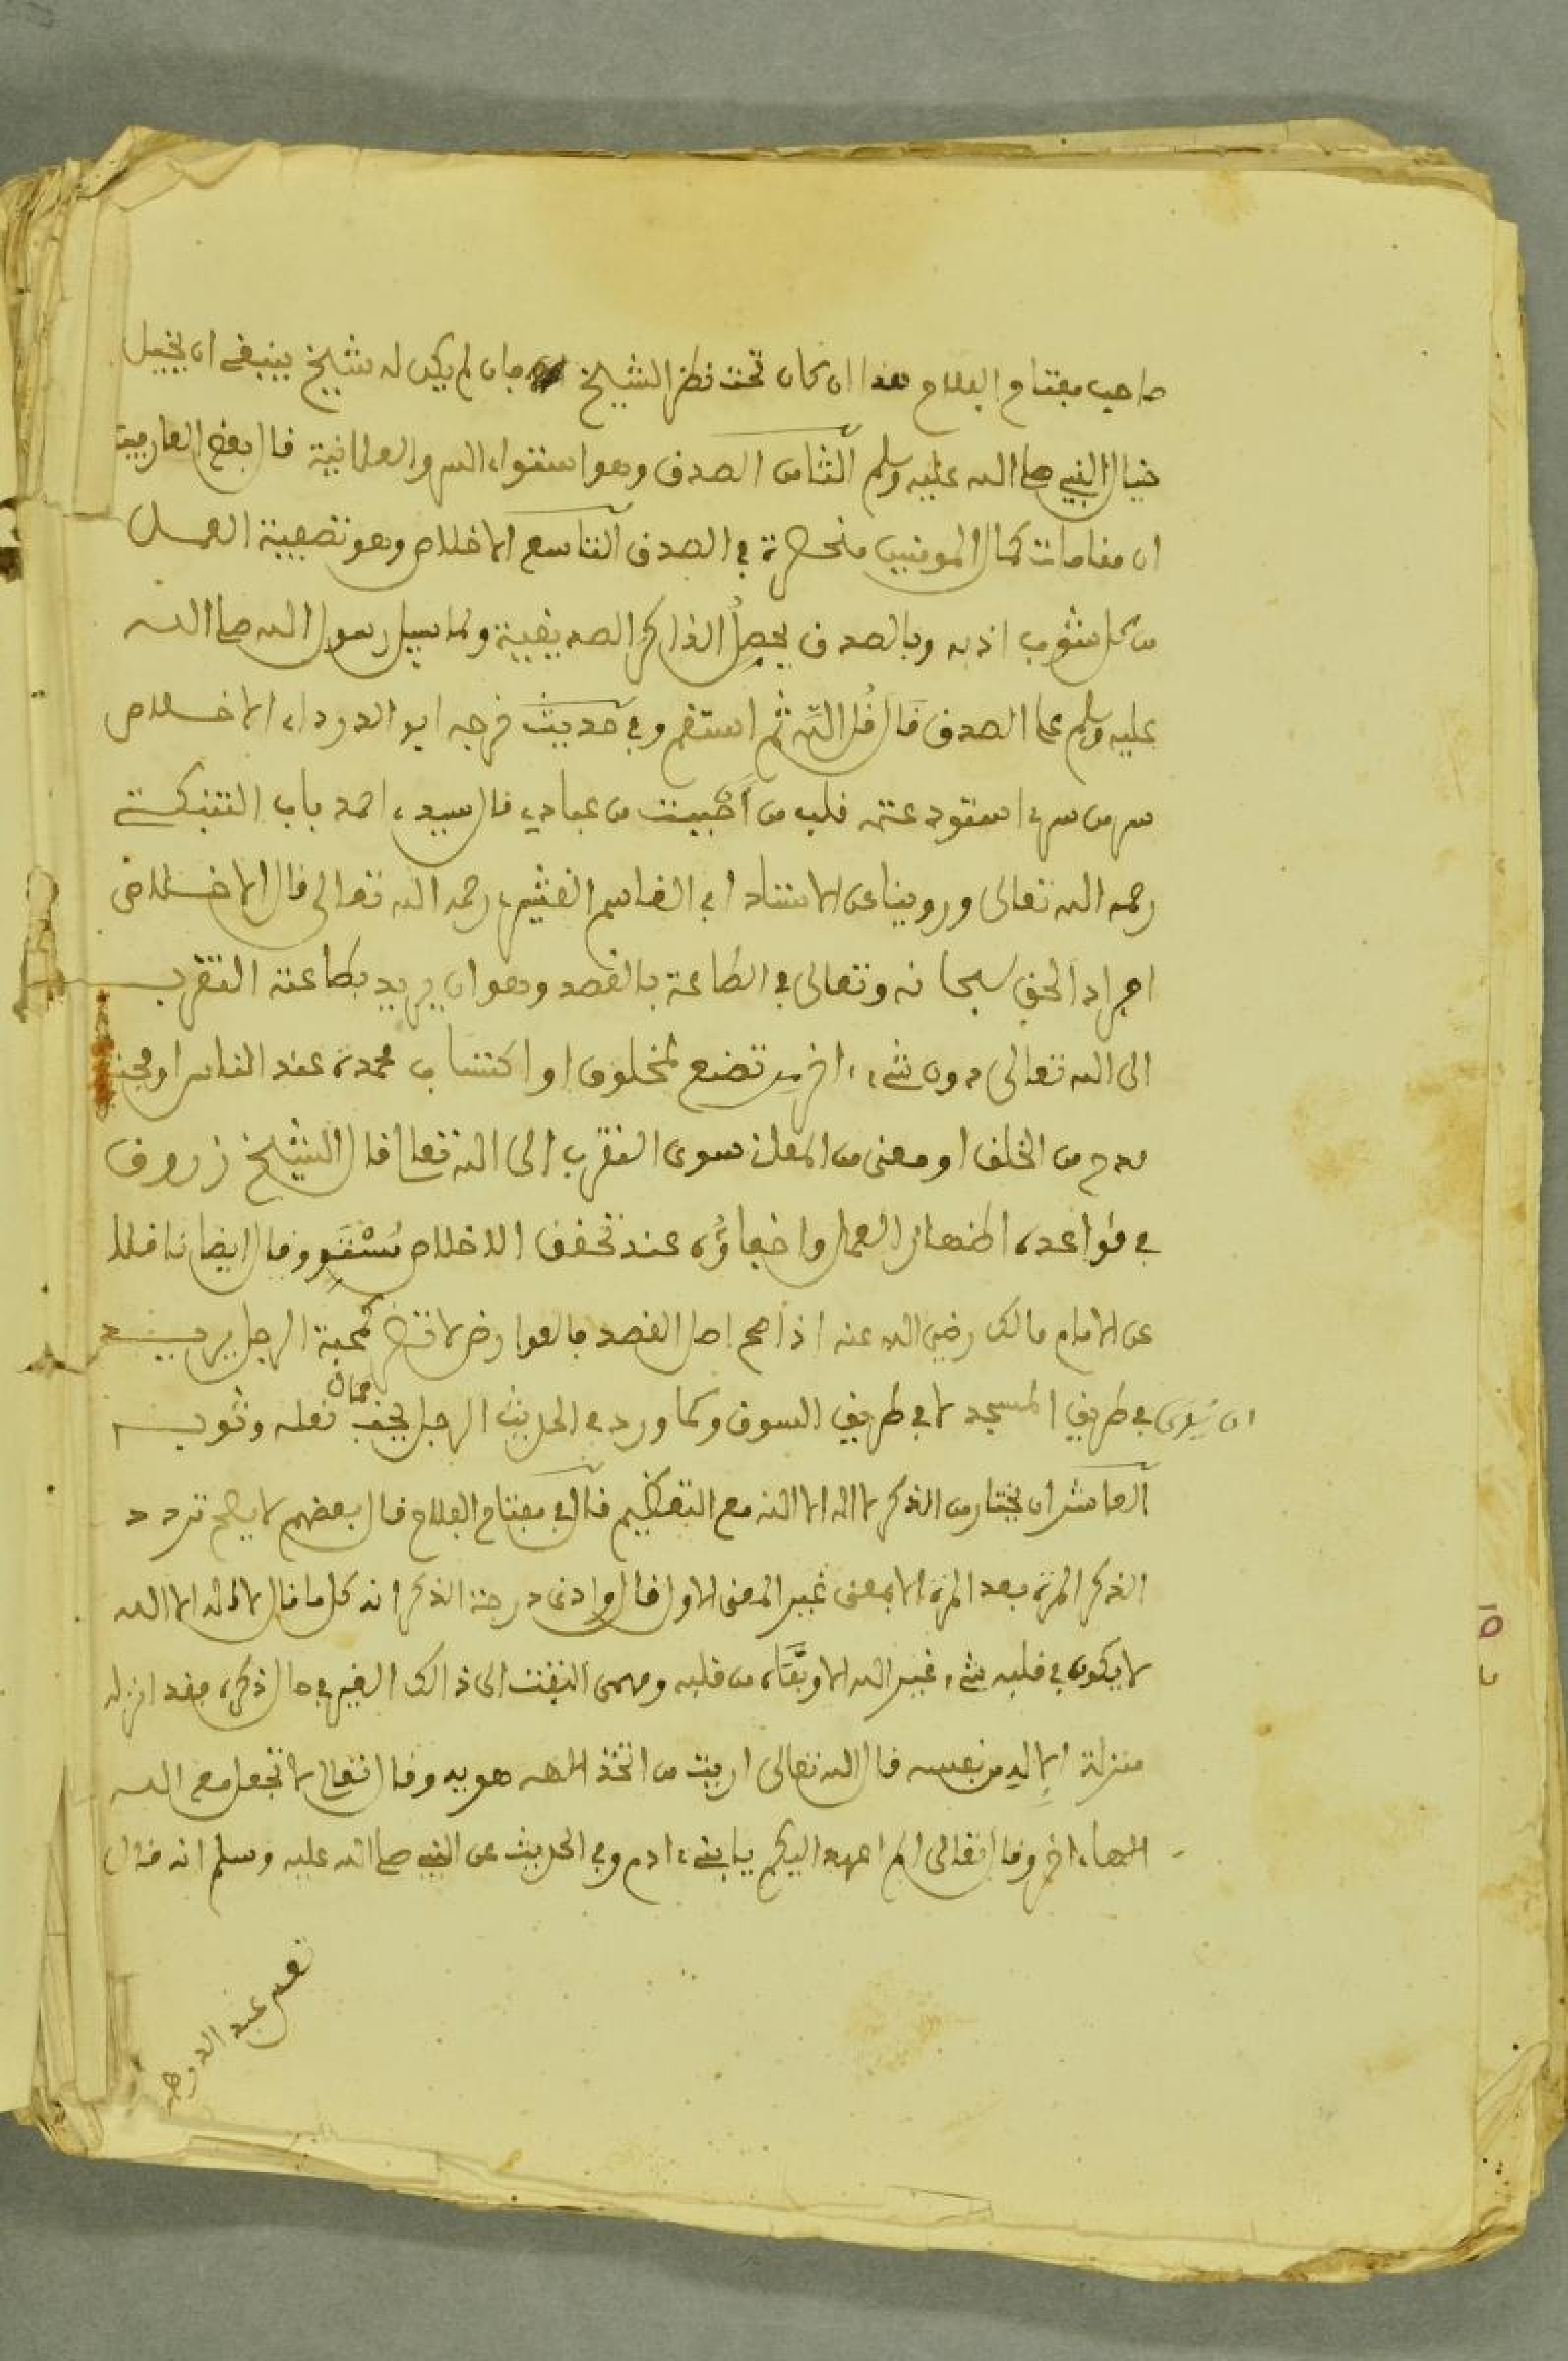 صاحب مفتاح الفلاح هذا ان كان تحت نظر الشيخ فان لم يكن له شيخ ينبغي ان يخيل
خيال النبي صلى الله عليه وسلم الثامن الصدق وهو استواء السر والعلانية قال بعض العارفين
ان مقامات كمال المومنين منحصرة في الصدق التاسع الاخلاص وهو تصفية العمل
من كل شوب اذ به وبالصدق يحصل الذاكر الصديقية ولما سيل رسول الله صلى الله
عليه وسلم عما الصدق قال قل الله ثم استقم وفي حديث خرجه ابو الدرداء الاخلاص
سر من سرى استودعته قلب من احببت من عبادي قال سيدي احمد باب التنبكتي
رحمه الله تعالى وروينا عن الاستاد ابي القاسم القشيري رحمه الله تعالى قال الاخلاص
افراد الحق سبحانه وتعالى في الطاعة بالقصد وهو ان يريد بطاعته التقرب
الى الله تعالى دون شيء اخر من تصنع لمخلوق او اكتساب محمدة عند الناس او محبة
مدح من الخلق او معنى من المعان سوى التقرب الى الله تعالى قال الشيخ زروق
في قواعده اظهار العمل واخفاؤه عند تحقق الاخلاص مستو وقال ايضا ناقلا
عن الامام مالك رضي الله عنه اذا صح اصل القصد فالعوارض لا تضر كمحبة الرجل يريد
ان يرى في طريق المسجد لا في طريق السوق وكما ورد في الحديث الرجل يحب جمال نعله وثوبه
العاشر ان يختار من الذكر لا اله الا الله مع التعظيم قال في مفتاح الفلاح قال بعضهم لا يصح تردد
الذكر المرة بعد المرة الا بمعنى غير المعنى الاول قال وادنى درجة الذكر انه كل ما قال لا اله الا الله
لا يكون في قلبه شيء غير الله الا ونفاه من قلبه ومهمى التفت الى ذالك الغير في حال ذكره فقد انزله
منزلة الاله من نفسه قال الله تعالى اريت من اتخذ الهه هويه وقال تعالى لا تجعل مع الله
الها اخر وقال تعالى الم اعهد اليكم يابني ادم وفي الحديث عن النبي صلى الله عليه وسلم انه قال
تعس عبد الدرهم